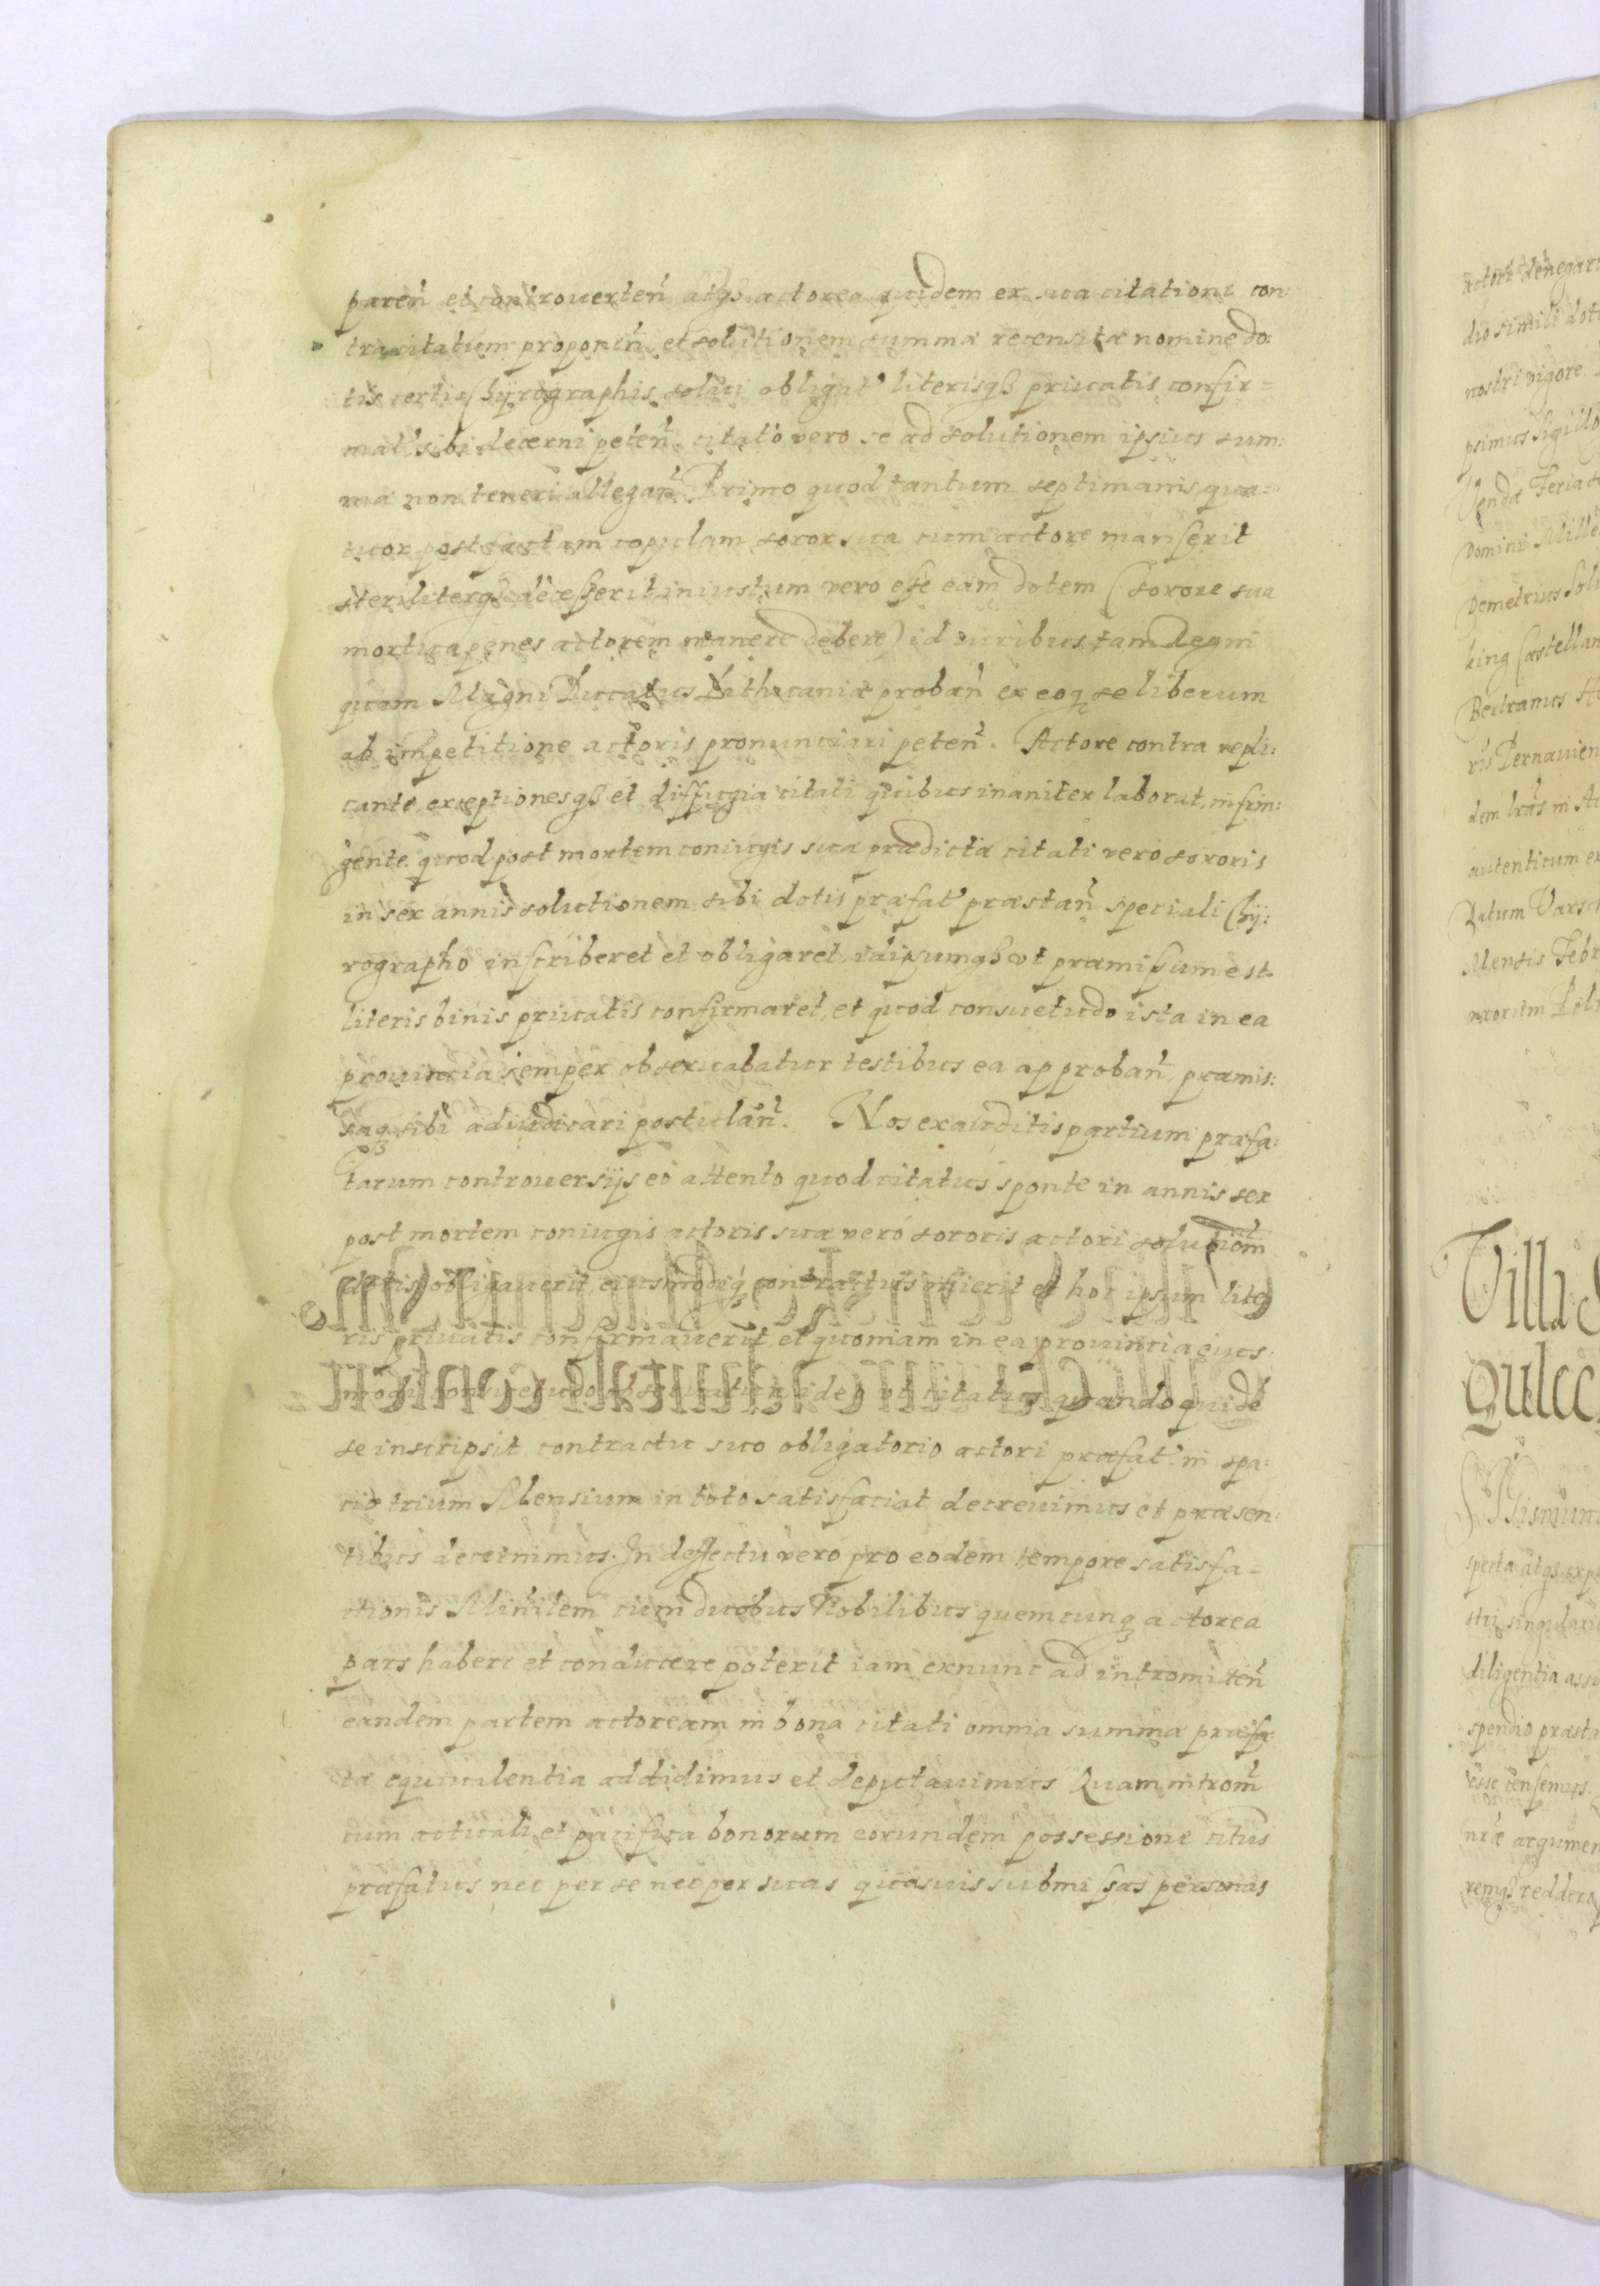 paren̄ et controuerten̄ atqȝ actorea quidem ex sua citatione con
tra citatum proponen̄ et solutionem summæ recensitæ nomine do:
tis certis Chÿrographis solui obligat' literisqȝ priuatis confir=
mat' sibi decerni peten̄ citato vero se ad solutionem ipsius sum:
mæ non teneri allegan̄ Primo quod tantum septimanis qua=
tuor post factam copulam soror sua cum actore manserit
steriliterqȝ decesserit, iniustum vero esse eam dotem (sorore sua
mortua penes actorem manere debere) id iuribus tam Regni
quam Magni Ducatus Lithuaniæ proban̄ ex eoq̨ se liberum
ab impetitione actoris pronunciari peten̄. Actore contra repli:
cante, exceptionesqȝ et diffugia citati quibus inaniter laborat, infrin:
gente quod post mortem coniugis suæ prædictæ citati vero sororis
in sex annis solutionem sibi dotis præfat' præstan̄ speciali Chÿ:
rographo inscriberet et obligaret, idipsumqȝ vt præmissum est
literis binis priuatis confirmaret, et quod consuetudo ista in ea
prouincia semper obseruabatur testibus ea approban̄, præmis:
saqȝ sibi adiudicari postulan̄. Nos exauditis partium præfa:
tarum controuersijs eo attento quod citatus sponte in annis sex
post mortem coniugis actoris suæ vero sororis actori solutiom̄
dotis obligauerit, eiusmodiq̨ contractus inierit et hoc ipsum lite
ris priuatis confirmauerit, et quoniam in ea prouincia eius:
modi consuetudo obseruatur, ideo vt citatus quandoquide
se inscripsit contractu suo obligatorio actori præfat' in spa:
cio trium Mensium in toto satisfaciat decreuimus et præsen:
tibus decernimus. In deffectu vero pro eodem tempore satisfa=
ctionis Min̄ilem cum duobus Nobilibus quemcunqȝ actorea
pars habere et conducere poterit iam exnunc ad intromitten̄
eandem partem actoream in bona citati omnia summæ præfa
tæ equiualentia addidimus et deputauimus Quam introm̄
cum actuali et pacifica bonorum eorundem possessione citus
præfatus nec per se nec per suas quasuis submissas personas
actori denegare
dio simili
nostri vigore
psimus Sigillo
Domini Mille
Demetrius Soli
king Castellan
ris Pernauien
dem lras in Ac
autenticum ex
Datum Vars
Mensis Febr
Villa
specta atqȝ exp
diligentia
spendio præsta
esse censemus.